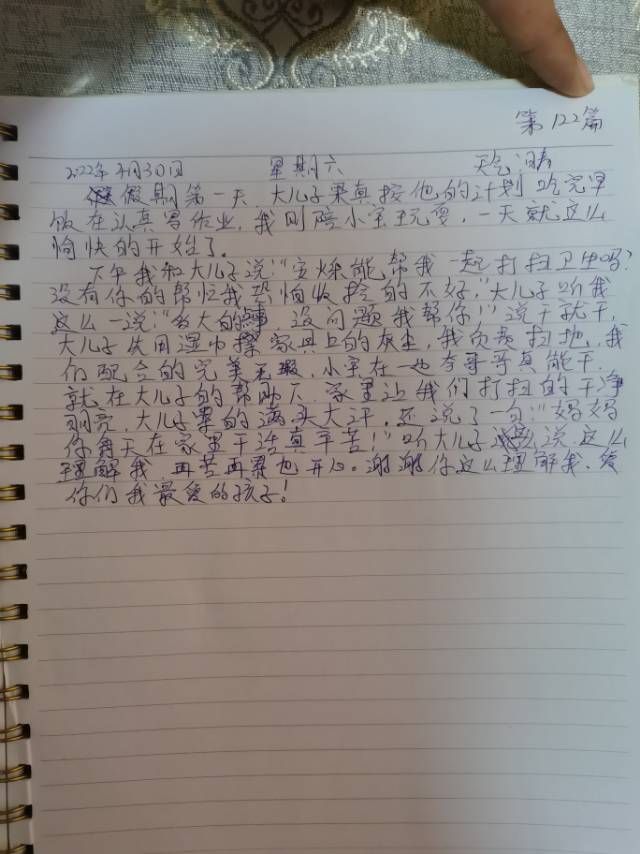 第122篇
2022年4月30日 星期六 天气 晴
假期第一天,大儿子果真按他的计划,吃完早
饭在认真写作业,我则陪小宝玩耍,一天就这么
愉快的开始了。
下午我和大儿子说:“宝烁能帮我一起打扫卫生吗?
没有你的帮忙我恐怕收拾的不好,”大儿子听我
这么一说:“多大的事 没问题我帮你!”说干就干,
大儿子先用湿巾擦家具上的灰尘,我负责扫地,我
们配合的完美无瑕,小宝在一边夸哥哥真能干,
就在大儿子的帮助下,家里让我们打扫的干净
明亮,大儿子累的满头大汗,还说了一句:“妈妈
你每天在家里干活真辛苦!”听大儿子说,这么
理解我,再苦再累也开心。谢谢你这么理解我、爱
你们我最爱的孩子!